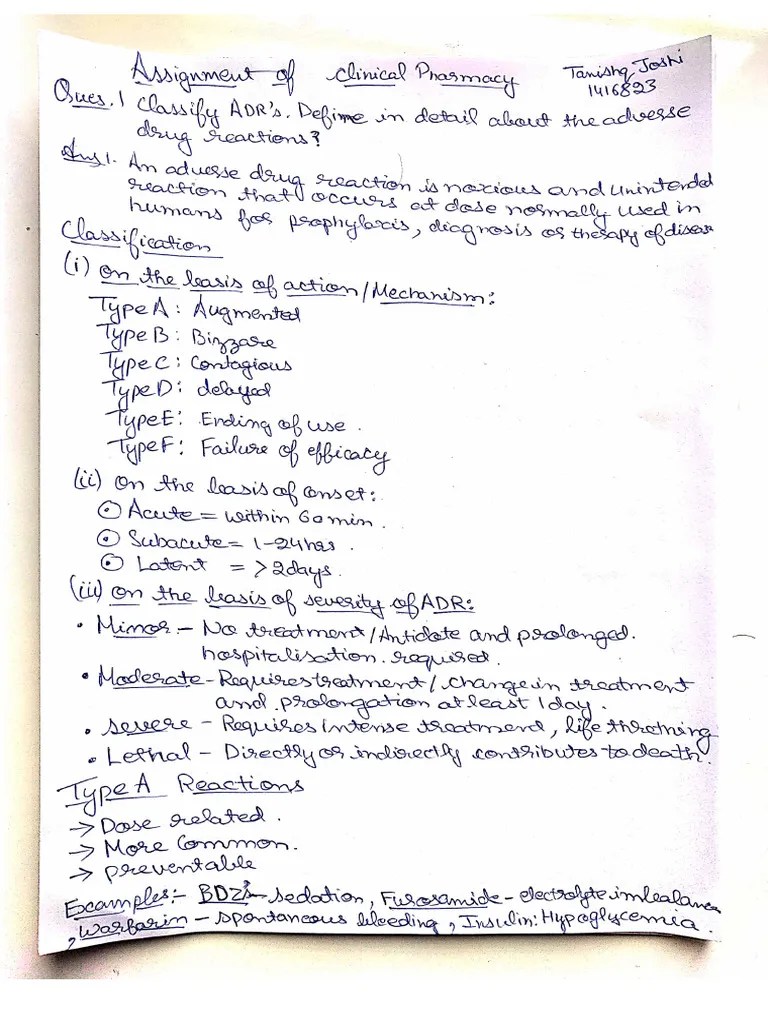 Assignment of Clinical Pharmacy
Tanishq Joshi
1416823
Ques. 1 Classify ADR's. Define in detail about the adverse
drug reactions?
Ans 1. An adverse drug reaction is noxious and unintended
reaction that occurs at dose normally used in
humans for prophylaxis, diagnosis or therapy of disease
Classification
(i) on the basis of action/Mechanism:
Type A: Augmented
Type B: Bizzare
Type C: Contagious
Type D: delayed
Type E: Ending of use.
Type F: Failure of efficacy
(ii) on the basis of onset:
⊙ Acute = within 60 min.
⊙ Subacute = 1-24 hrs.
⊙ Latent = > 2 days.
(iii) on the basis of severity of ADR:
• Minor - No treatment/Antidote and prolonged.
hospitalisation required.
• Moderate - Requires treatment/change in treatment
and prolongation at least 1 day.
• severe - Requires intense treatment, life thretning
• Lethal - Directly or indirectly contributes to death.
Type A Reactions
→ Dose related.
→ More Common.
→ preventable
Examples:- BDZ's - sedation, Furosamide - electrolyte imbalance
, Warfarin - spontaneous bleeding, Insulin: Hypoglycemia.